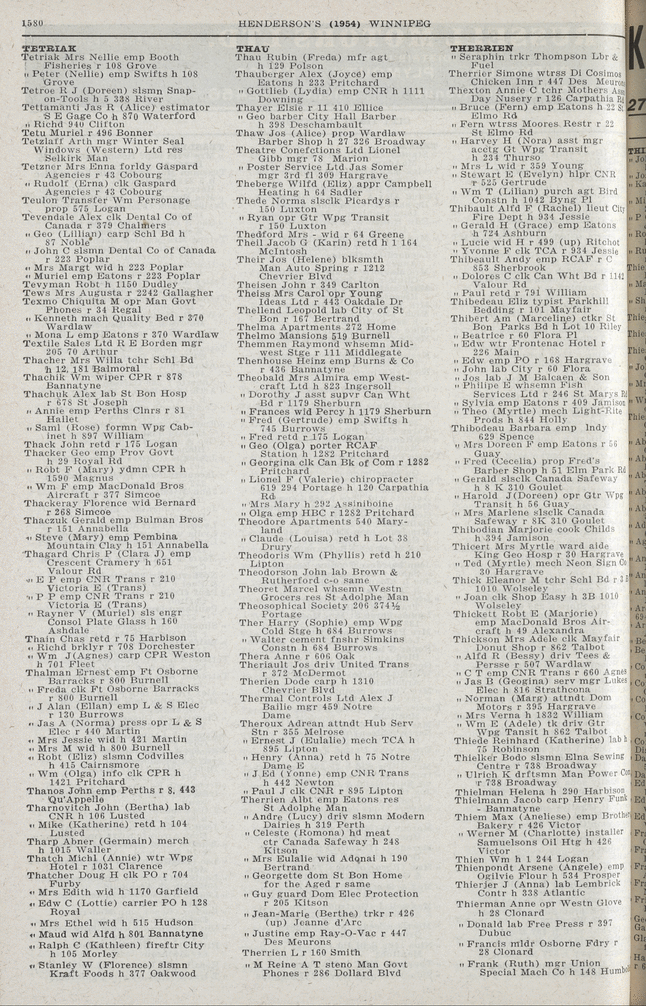 1580
HENDERSON'S (1954) WINNIPEG
TETRIAK
Tetriak Mrs Nellie emp Booth
Fisheries r 108 Grove
" Peter (Nellie) emp Swifts h 108
Grove
Tetroe R J (Doreen) slsmn Snap-
on-Tools h 5 338 River
Tettamanti Jas R (Alice) estimator
S E Gage Co h 870 Waterford
" Richd 940 Clifton
Tetu Muriel r 496 Bonner
Tetzlaff Arth mgr Winter Seal
Windows (Western) Ltd res
Selkirk Man
Tetzner Mrs Enna forldy Gaspard
Agencies r 43 Cobourg
" Rudolf (Erna) clk Gaspard
Agencies r 43 Cobourg
Teulon Transfer Wm Personage
prop 575 Logan
Tevendale Alex clk Dental Co of
Canada r 379 Chalmers
" Geo (Lillian) carp Schl Bd h
87 Noble
" John C slsmn Dental Co of Canada
r 223 Poplar
" Mrs Margt wid h 223 Poplar
" Muriel emp Eatons r 223 Poplar
Tevyman Robt h 1150 Dudley
Tews Mrs Augusta r 2242 Gallagher
Texmo Chiquita M opr Man Govt
Phones r 34 Regal
" Kenneth mach Quality Bed r 370
Wardlaw
" Mona L emp Eatons r 370 Wardlaw
Textile Sales Ltd R E Borden mgr
205 70 Arthur
Thacher Mrs Willa tchr Schl Bd
h 12, 181 Balmoral
Thachik Wm wiper CPR r 878
Bannatyne
Thachuk Alex lab St Bon Hosp
r 678 St Joseph
" Annie emp Perths Clnrs r 81
Hallet
" Saml (Rose) formn Wpg Cab-
inet h 897 William
Thack John retd r 175 Logan
Thacker Geo emp Prov Govt
h 29 Royal Rd
" Robt F (Mary) ydmn CPR h
1590 Magnus
" Wm F emp MacDonald Bros
Aircraft r 377 Simcoe
Thackeray Florence wid Bernard
r 268 Simcoe
Thaczuk Gerald emp Bulman Bros
r 151 Annabella
" Steve (Mary) emp Pembina
Mountain Clay h 151 Annabella
Thagard Chris P (Clara J) emp
Crescent Cramery h 651
Valour Rd
" E P emp CNR Trans r 210
Victoria E (Trans)
" P P emp CNR Trans r 210
Victoria E (Trans)
" Rayner V (Muriel) sls engr
Consol Plate Glass h 160
Ashdale
Thain Chas retd r 75 Harbison
" Richd brklyr r 708 Dorchester
" Wm J(Agnes) carp CPR Weston
h 701 Fleet
Thalman Ernest emp Ft Osborne
Barracks r 800 Burnell
" Freda clk Ft Osborne Barracks
r 800 Burnell
" J Alan (Ellan) emp L & S Elec
r 120 Burrows
" Jas A (Norma) press opr L & S
Elec r 440 Martin
" Mrs Jessie wid h 421 Martin
" Mrs M wid h 800 Burnell
" Robt (Eliz) slsmn Codvilles
h 415 Cairnsmore
" Wm (Olga) info clk CPR h
1421 Pritchard
Thanos John emp Perths r 8, 443
Qu'Appelle
Tharnovitch John (Bertha) lab
CNR h 106 Lusted
" Mike (Katherine) retd h 104
Lusted
Tharp Abner (Germain) merch
h 1015 Waller
Thatch Michl (Annie) wtr Wpg
Hotel r 1031 Clarence
Thatcher Doug H clk PO r 704
Furby
" Mrs Edith wid h 1170 Garfield
" Edw C (Lottie) carrier PO h 128
Royal
" Mrs Ethel wid h 515 Hudson
" Maud wid Alfd h 801 Bannatyne
" Ralph C (Kathleen) fireftr City
h 105 Morley
" Stanley W (Florence) slsmn
Kraft Foods h 377 Oakwood
THAU
Thau Rubin (Freda) mfr agt
h 129 Polson
Thauberger Alex (Joyce) emp
Eatons h 233 Pritchard
" Gottlieb (Lydia) emp CNR h 1111
Downing
Thayer Elsie r 11 410 Ellice
" Geo barber City Hall Barber
h 398 Deschambault
Thaw Jos (Alice) prop Wardlaw
Barber Shop h 27 326 Broadway
Theatre Conefctions Ltd Lionel
Gibbl mgr 78 Marion
" Poster Service Ltd Jas Somer
mgr 3rd fl 309 Hargrave
Theberge Wilfd (Eliz) appr Campbell
Heating h 64 Sadler
Thede Norma slsclk Picardys r
150 Luxton
" Ryan opr Gtr Wpg Transit
r 150 Luxton
Thedford Mrs - wid r 64 Greene
Theil Jacob G (Karin) retd h 1 164
McIntosh
Their Jos (Helene) blksmth
Man Auto Spring r 1212
Chevrier Blvd
Theisen John r 349 Carlton
Theiss Mrs Carol opr Young
Ideas Ltd r 443 Oakdale Dr
Thellend Leopold lab City of St
Bon r 167 Bertrand
Thelma Apartments 272 Home
Thelmo Mansions 519 Burnell
Themmen Raymond whsemn Mid-
west Stge r 111 Middlegate
Thenhouse Heinz emp Burns & Co
r 436 Bannatyne
Theobald Mrs Almira emp West-
craft Ltd h 823 Ingersoll
" Dorothy J asst supvr Can Wht
Bd r 1179 Sherburn
" Frances wid Percy h 1179 Sherburn
" Fred (Gertrude) emp Swifts h
745 Burrows
" Fred retd r 175 Logan
" Geo (Olga) porter RCAF
Station h 1282 Pritchard
" Georgina clk Can Bk of Com r 1282
Pritchard
" Lionel F (Valerie) chiropracter
619 294 Portage h 120 Carpathia
Rd
" Mrs Mary h 292 Assiniboine
" Olga emp HBC r 1282 Pritchard
Theodore Apartments 540 Mary-
land
" Claude (Louisa) retd h Lot 38
Drury
Theodoris Wm (Phyllis) retd h 210
Lipton
Theodorson John lab Brown &
Rutherford c-o same
Theoret Marcel whsemn Westn
Grocers res St Adolphe Man
Theosophical Society 206 374½
Portage
Ther Harry (Sophie) emp Wpg
Cold Stge h 684 Burrows
" Walter cement fnshr Simkins
Constn h 684 Burrows
Thera Anne r 606 Oak
Theriault Jos driv United Trans
r 372 McDermot
Therien Dode carp h 1310
Chevrier Blvd
Thermal Controls Ltd Alex J
Bailie mgr 459 Notre
Dame
Theroux Adrean attndt Hub Serv
Stn r 355 Melrose
" Ernest J (Eulalie) mech TCA h
895 Lipton
" Henry (Anna) retd h 75 Notre
Dame E
" J Ed (Yonne) emp CNR Trans
h 442 Newton
" Paul J clk CNR r 895 Lipton
Therrien Albt emp Eatons res
St Adolphe Man
" Andre (Lucy) driv slsmn Modern
Dairies h 319 Perth
" Celeste (Romona) hd meat
ctr Canada Safeway h 248
Kitson
" Mrs Eulalie wid Adonai h 190
Bertrand
" Georgette dom St Bon Home
for the Aged r same
" Guy guard Dom Elec Protection
r 205 Kitson
" Jean-Marie (Berthe) trkr r 426
(up) Jeanne d'Arc
" Justine emp Ray-O-Vac r 447
Des Meurons
Therrien L r 160 Smith
" M Reine A T steno Man Govt
Phones r 286 Dollard Blvd
THERRIEN
" Seraphin trkr Thompson Lbr &
Fuel
Therrier Simone wtrss Di Cosimos
Chicken Inn r 447 Des Meurons
Thexton Annie C tchr Mothers Assn
Day Nursery r 126 Carpathia Rd
" Bruce (Fern) emp Eatons h 22 St
Elmo Rd
" Fern wtrss Moores Restr r 22
St Elmo Rd
" Harvey H (Nora) asst mgr
acctg Gt Wpg Transit
h 234 Thurso
" Mrs L wid r 359 Young
" Stewart E (Evelyn) hlpr CNR
r 525 Gertrude
" Wm T (Lilian) purch agt Bird
Constn h 1042 Byng Pl
Thibault Alfd F (Rachel) lieut City
Fire Dept h 934 Jessie
" Gerald H (Grace) emp Eatons
h 724 Ashburn
" Lucie wid H r 499 (up) Ritchot
" Yvonne F clk TCA r 934 Jessie
Thibeault Andy emp RCAF r C
853 Sherbrook
" Dolores C clk Can Wht Bd r 1142
Valour Rd
" Paul retd r 791 William
Thibedeau Eliz typist Parkhill
Bedding r 101 Mayfair
Thibert Am (Marceline) ctkr St
Bon Parks Bd h Lot 10 Riley
" Beatrice r 60 Flora Pl
" Edw wtr Frontenac Hotel r
226 Main
" Edw emp PO r 168 Hargrave
" John lab City r 60 Flora
" Jos lab J M Halcaen & Son
" Philipe E whsemn Fish
Services Ltd r 246 St Marys Rd
" Sylvia emp Eatons r 409 Jamison
" Theo (Myrtle) mech Light-Rite
Prods h 844 Holly
Thibodeau Barbara emp Indy
629 Spence
" Mrs Doreen F emp Eatons r 56
Guay
" Fred (Cecelia) prop Fred's
Barber Shop h 51 Elm Park Rd
" Gerald slsclk Canada Safeway
h 8 K 310 Goulet
" Harold J(Doreen) opr Gtr Wpg
Transit h 56 Guay
" Mrs Mariene slsclk Canada
Safeway r 8K 310 Goulet
Thibodian Marjorie cook Childs
h 394 Jamison
Thicert Mrs Myrtle ward aide
King Geo Hosp r 30 Hargrave
" Ted (Myrtle) mech Neon Sign Co
30 Hargrave
Thick Eleanor M tchr Schl Bd r 3 B
1010 Wolseley
" Joan clk Shop Easy h 3B 1010
Wolseley
Thickett Robt E (Marjorie)
emp MacDonald Bros Air-
craft h 49 Alexandra
Thickson Mrs Adele clk Mayfair
Donut Shop r 862 Talbot
" Alfd R (Bessy) driv Tees &
Persse r 507 Wardlaw
" C T emp CNR Trans r 660 Agnes
" Jas B (Geogina) serv mgr Lukes
Elec h 816 Strathcona
" Norman (Marg) attndt Dom
Motors r 395 Hargrave
" Mrs Verna h 1832 William
" Wm E (Adele) tk driv Gtr
Wpg Tansit h 862 Talbot
Thiede Reinhard (Katherine) lab h
75 Robinson
Thielker Bodo slsmn Elna Sewing
Centre r 738 Broadway
" Ulrich K drftsmn Man Power Com
r 738 Broadway
Thielman Helena h 290 Harbison
Thielmann Jacob carp Henry Funk
- Bannatyne
Thiem Max (Aneliese) emp Brothers
Bakery r 426 Victor
" Werner M (Charlotte) installer
Samuelsons Oil Htg h 426
Victor
Thien Wm h 1 244 Logan
Thienpondt Arsene (Angele) emp
Ogilvie Flour h 534 Prosper
Thierjer J (Anna) lab Lembrick
Contr h 338 Atlantic
Thierman Anne opr Westn Glove
h 28 Clonard
" Donald lab Free Press r 397
Dubuc
" Francis mldr Osborne Fdry r
28 Clonard
" Frank (Ruth) mgr Union
Special Mach Co h 148 Humbolt
K
27